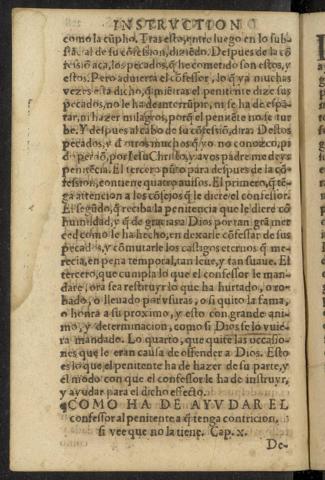 INSTRUCTION
como la cũpho. Tras esto, entre luego en lo subs-
tãcial de su cõfession, diziẽdo. Despues de la cõ
fessiõ acâ, los pecados, q̃ he cometido son estos, y
estos. Pero aduierta el cõfessor, lo q̃ ya muchas
vezes esta dicho, q̃ miẽtras el penitente dize sus
pecados, no le ha de interrũpir, ni se ha de espã-
tar, ni hazer milagros, porq̃ el penitẽte no se tur
be. Y despues al cabo de su cõfessiõ, diras Destos
pecados, y d̃ otros muchos q̃ yo no conozco, pi
do perdõ, por Iesu Christo, y a vos padre me deys
penitẽcia. El tercero pũto para despues de la cõ
fession, contiene quatro auisos. El primero, q̃ tẽ-
ga attencion a los cõsejos q̃ le diere el confessor.
El segũdo, q̃ reciba la penitencia q̃ le diere cõ
humildad, y q̃ de gracias a Dios por tan grã mer
ced como le ha hecho, en dexarle cõfessar de sus
pecados, y cõmutarle los castigos eternos q̃ me-
recia, en pena temporal, tan leue, y tan suaue. El
tercero, que cumpla lo que el confessor le man-
dare, ora sea restituyr lo que ha hurtado, o ro-
bado, o lleuado por vsuras, o si quito la fama,
o honra a su proximo, y esto con grande ani-
mo, y determinacion, como si Dios se lo vuie-
ra mandado. Lo quarto, que quite las occasio-
nes que le eran causa de offender a Dios. Esto
es lo que el penitente ha de hazer de su parte, y
el modo con que el confessor le ha de instruyr,
y ayudar para el dicho effecto.
¶COMO HA DE AYVDAR EL
confessor al penitente a q̃ tenga contricion,
si vee que no la tiene. Cap. x.
De-